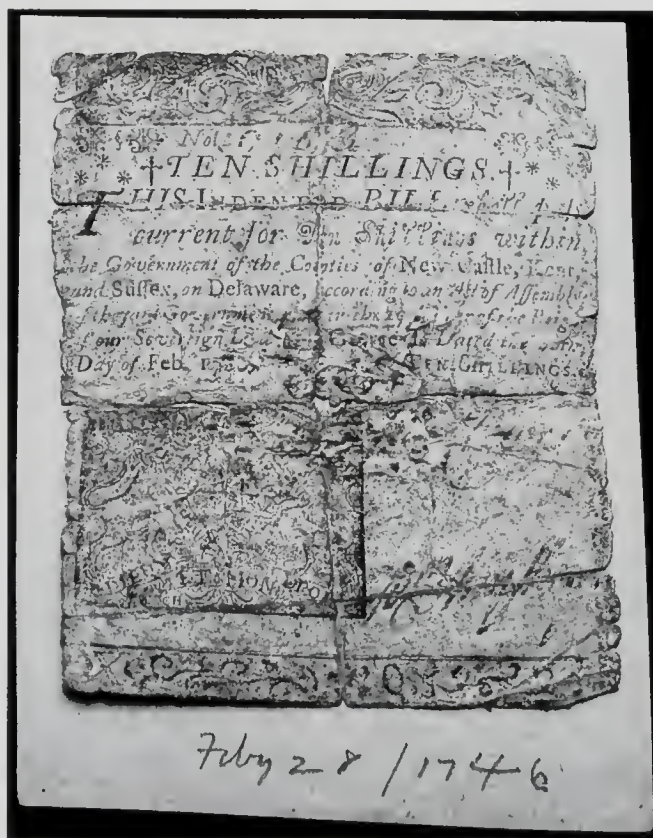 No
TEN SHILLINGS
THIS INDENTED BILL shall pass
current for Ten Shillings within
the Government of the Counties of New Castle, Kent,
and Sussex, on Delaware, according to an Act of Assembly
of the said Government in the Year of the Reign
of our Sovereign Lord George Dated the
Day of Feb. TEN SHILLINGS.
DIEU ET MON DRO
Feby 28 / 1746